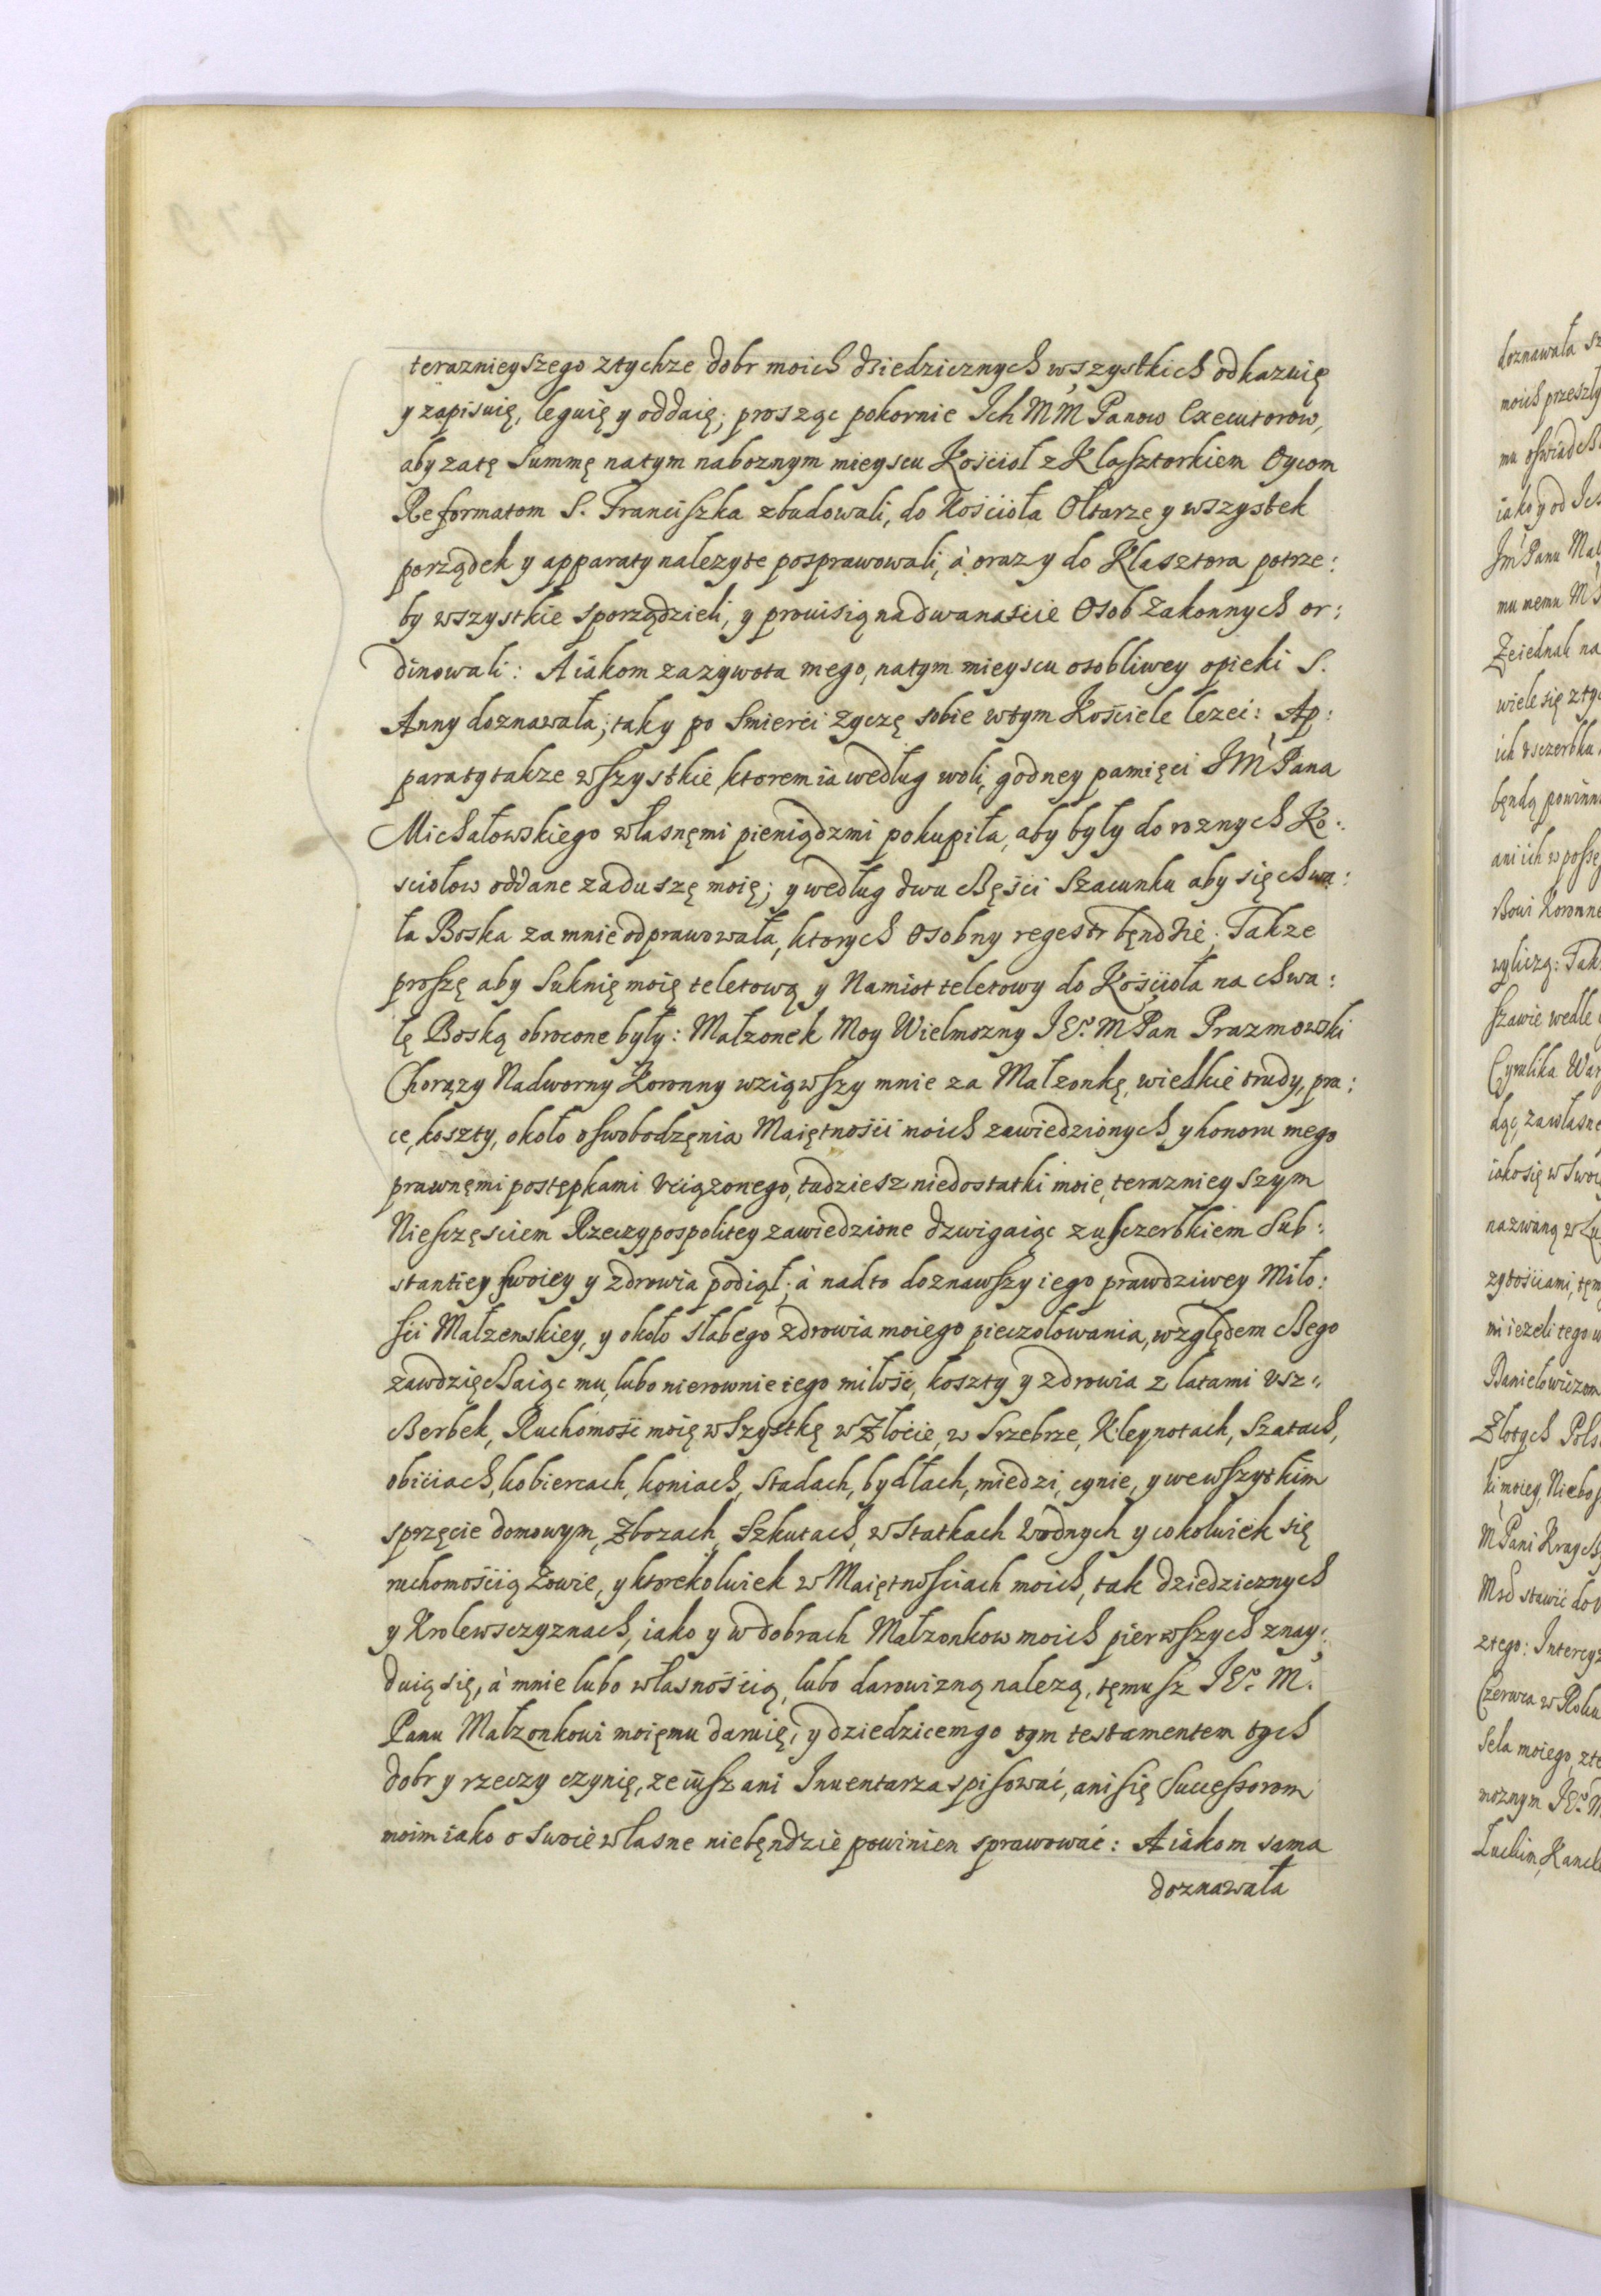 teraznieyszego ztychze dobr moich dziedzicznych wszystkich odkazuię
y zapisuię, leguię y oddaię; prosząc pokornie Ich M̃M Panow Executorow,
aby zatę Summę natym naboznym mieyscu Kościoł z Klasztorkiem Oycom
Reformatom S. Franciszka zbudowali, do Kościoła Ołtarze y wszystek
porządek y apparaty nalezyte posprawowali, à oraz y do Klasztora potrze:
by wszystkie sporządzieli, y prouisią nadwanaście Osob Zakonnych or:
dinowali: A iakom zazywota mego, natym mieyscu osobliwey opieki S.
Anny doznawała; taky po Smierci zyczę sobie wtym Kościele lezeć: Ap:
paraty takze wszystkie, ktoremia według woli, godney pamięci JM Pana
Michałowskiego własnęmi pieniądzmi pokupiła, aby były do roznych Ko:
sciołow oddane zaduszę moię; y według dwu części Szacunku aby się chwa:
ła Boska zamnie odprawowała, ktorych osobny regestr będzie. Takze
proszę aby Suknię moię teletową y Namiot teletowy do Kościoła na chwa:
łę Boską obrocone były: Małzonek Moy Wielmozny JEᵒ M Pan Prazmowski
Chorązy Nadworny Koronny wziąwszy mnie za Małzonkę, wielkie trudy, pra:
ce, koszty, około oswobodzęnia Maiętności moich zawiedzionych, y honoru mego
prawnęmi postępkami vciązonego, tudziesz niedostatki moie, teraznieyszym
Niesczęściem Rzeczypospolitey zawiedzione dzwigaiąc zusczerbkiem Sub:
stantiey swoiey y zdrowia podiął; à nadto doznawszy iego prawdziwey Miło:
ści Małzenskiey, y około słabego zdrowia moiego pieczołowania, względem czego
zawdzięczaiąc mu, lubo nierownie iego miłość, koszty y zdrowia z latami vsz:
czerbek, Ruchomość moię wszystkę w Złocie, w Srzebrze, Kleynotach, Szatach,
obiciach, kobiercach, koniach, Stadach, bydłach, miedzi, cynie, y wewszystkim
sprzęcie domowym, Zbozach, Szkutach, w Statkach Wodnych y cokolwiek się
ruchomością Zowie, y ktorekolwiek w Maiętnościach moich, tak dziedzicznych
y Krolewsczyznach, iako y w dobrach Małzonkow moich pierwszych znay:
duią się, à mnie lubo własnością, lubo darowizną nalezą, tęmusz JEᵒ M.
Panu Małzonkowi moięmu daruię, y dziedzicemgo tym testamentem tych
dobr y rzeczy czynię, ze iusz ani Inuentarza spisować, ani się Successorom
moim iako o swoie własne niebęndzie powinien sprawować: A iakom sama
doznawała
doznawała
moich przeszły
iako y od Ich
Jm Panu Mał
mu memu M
Zeiednak na
wiele się zty
ich vsczerbku
będą powinn
wyliczą: Tak
Cyrulika War
iako się w Swoi
mi iezeli tego
Danielowiczom
Złotych Pols
M Pani Krayc
ztego: Intercyz
Czerwca w Roku
Sela moiego, zte
moznym JEᵒ M